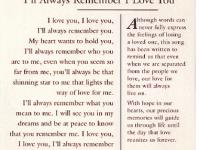 I'll Always Remember I Love You
I love you, I love you,
I'll always remember you.
My heart wants to hold you,
I'll always remember who you
are to me, even when you seem so
far from me, you'll always be that
shinning star to me that lights the
way of love for me.
I'll always remember what you
mean to me. I will see you in my
dreams and be at peace to know
that you remember me. I love you,
I love you, I'll always remember
Although words can
never fully express
the feelings of losing
a loved one, this song
has been written to
remind us that even
when we are separated
from the people we
love, our love for
them will always
live on.
With hope in our
hearts, our precious
memories will guide
us through life until
the day that love
reunites us forever.